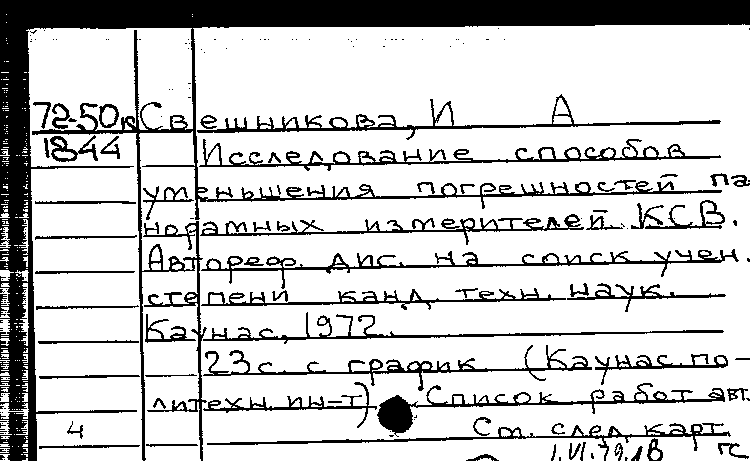 72-50к Свешникова, И А
1844 Исследование способов
уменьшения погрешностей па
норамных измерителей КСВ.
Автореф. дис. на соиск учен.
степени канд. техн. наук.
Каунас, 1972.
23 с. с график (Каунас. по-
литехн. ин-т) Список работ авт.
4 См. след. карт.